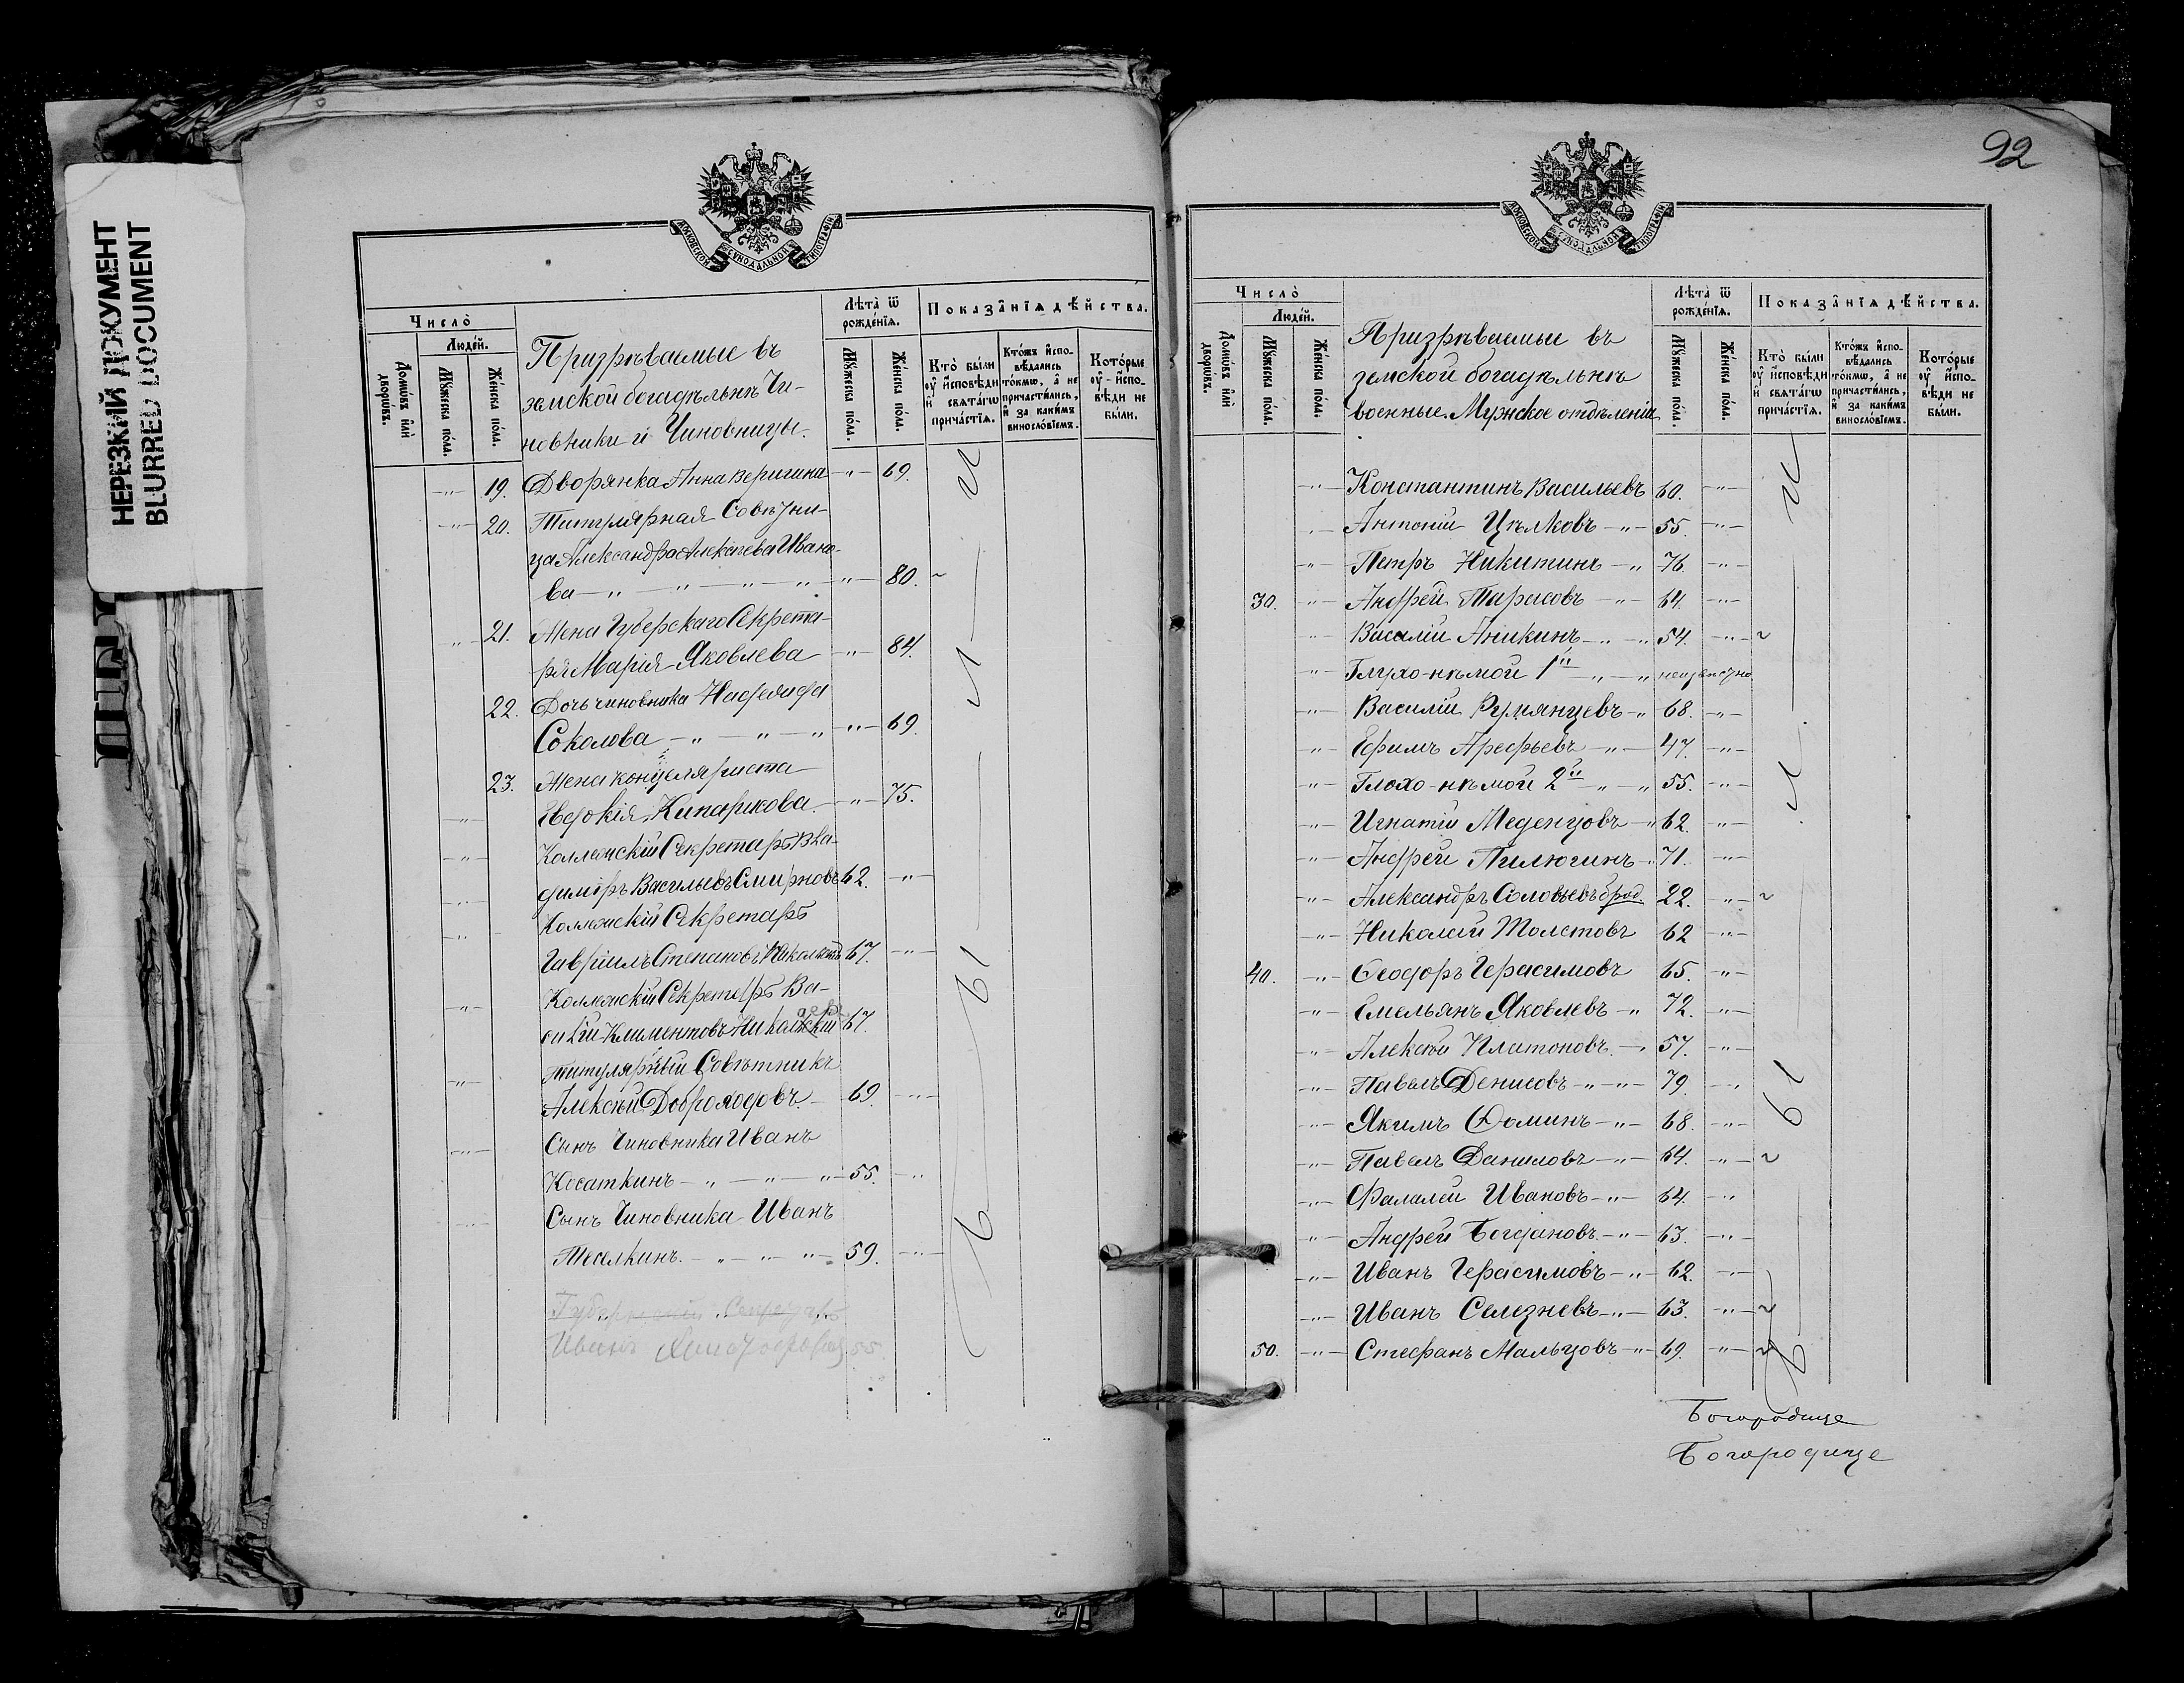 НЕРЕЗКИЙ ДОКУМЕНТ
BLURRED DOCUMENT
МОСКОВСКОЙ СѴНОДАЛЬНОЙ ТИПОГРАФІИ
Число̀
Людей.
Домѡвъ и҆лѝ дворѡвъ.
Мꙋжеска пола.
Же́нска по́ла.
Призрѣваемые въ
земской богадѣльнѣ Чи-
новники и Чиновницы.
Лѣта̀ ѿ рожде́нїѧ.
Мꙋжеска пола.
Же́нска по́ла.
Показа̑нїѧ дѣ́йства.
Кто̀ бы́ли ᲂу҆ и҆сповѣ́ди и҆ свѧта́гѡ прича́стїѧ.
Кто́жъ и҆спо-вѣ́дались то́кмѡ, а҆ не причасти́лись, и҆ за каки́мъ виносло́вїемъ.
Кото́рые ᲂу҆ и҆спо-вѣ́ди не бы́ли.
19. Дворянка Анна Веригина -"- 69.
20. Титулярная Совѣтни-
ца Александра Алексѣева Ивано-
ва -"- 80. ~
21. Жена Губерскаго Секрета-
ря Марія Яковлева -"- 84.
22. Дочь чиновника Надежда
Соколова -"- 69.
23. Жена концеляриста
Евдокія Кипарисова -"- 75.
Коллежскій Секретарь Вла-
диміръ Васильевъ Смирновъ 62. -"-
Коллежскій Секретарь
Гавріилъ Степановъ 67. -"-
Коллежскій Секретарь Ва-
силій Климентовъ 67.
Титулярный Совѣтникъ
Алексѣй Доброходовъ 69. -"-
Сынъ Чиновника Иванъ
Косаткинъ -"- 55. -"-
Сынъ Чиновника Иванъ
Теселкинъ. -"- 59. -"-
Губернскій Секретарь
Иванъ 55.
92
МОСКОВСКОЙ СѴНОДАЛЬНОЙ ТИПОГРАФІИ
Число̀
Людей.
Домѡвъ и҆лѝ дворѡвъ.
Мꙋжеска пола.
Же́нска по́ла.
Призрѣваемыи въ
земской богадѣльнѣ
военные. Мужское отдѣленіи
Лѣта̀ ѿ рожде́нїѧ.
Мꙋжеска пола.
Же́нска по́ла.
Показа̑нїѧ дѣ́йства.
Кто̀ бы́ли ᲂу҆ и҆сповѣ́ди и҆ свѧта́гѡ прича́стїѧ.
Кто́жъ и҆спо-вѣ́дались то́кмѡ, а҆ не причасти́лись, и҆ за каки́мъ виносло́вїемъ.
Кото́рые ᲂу҆ и҆спо-вѣ́ди не бы́ли.
Константинъ Васильевъ 60. -"-
Антоній Цѣлковъ -"- 55. -"-
Петръ Никитинъ -"- 76. -"-
30. Андрей Тарасовъ -"- 64. -"-
Василій Аникинъ -"- 54. -"- ~
Глухо-нѣмой 1й -"- неизвѣстно
Василій Румянцевъ -"- 68. -"-
Ефимъ Арефьевъ -"- 47. -"-
Глохо-нѣмой 2й -"- 55. -"-
Игнатій Меденцовъ -"- 62. -"-
Андрей Пилюгинъ -"- 71. -"-
Александръ Соловьевъ брод. 22. -"- ~
Николай Толстовъ 62 -"-
40. Ѳеодоръ Герасимовъ 65. -"-
Емельянъ Яковлевъ -"- 72. -"-
Алексѣй Платоновъ -"- 57. -"-
Павелъ Денисовъ -"- 79. -"-
Якимъ Ѳоминъ -"- 68. -"-
Павелъ Даниловъ -"- 64. -"- ~
Фалалей Ивановъ -"- 64. -"-
Андрей Богдановъ -"- 63. -"-
Иванъ Герасимовъ -"- 62. -"-
Иванъ Селезневъ -"- 63. -"- ~
50. Стефанъ Мальцовъ -"- 69. -"- ~
Богородице
Богородице